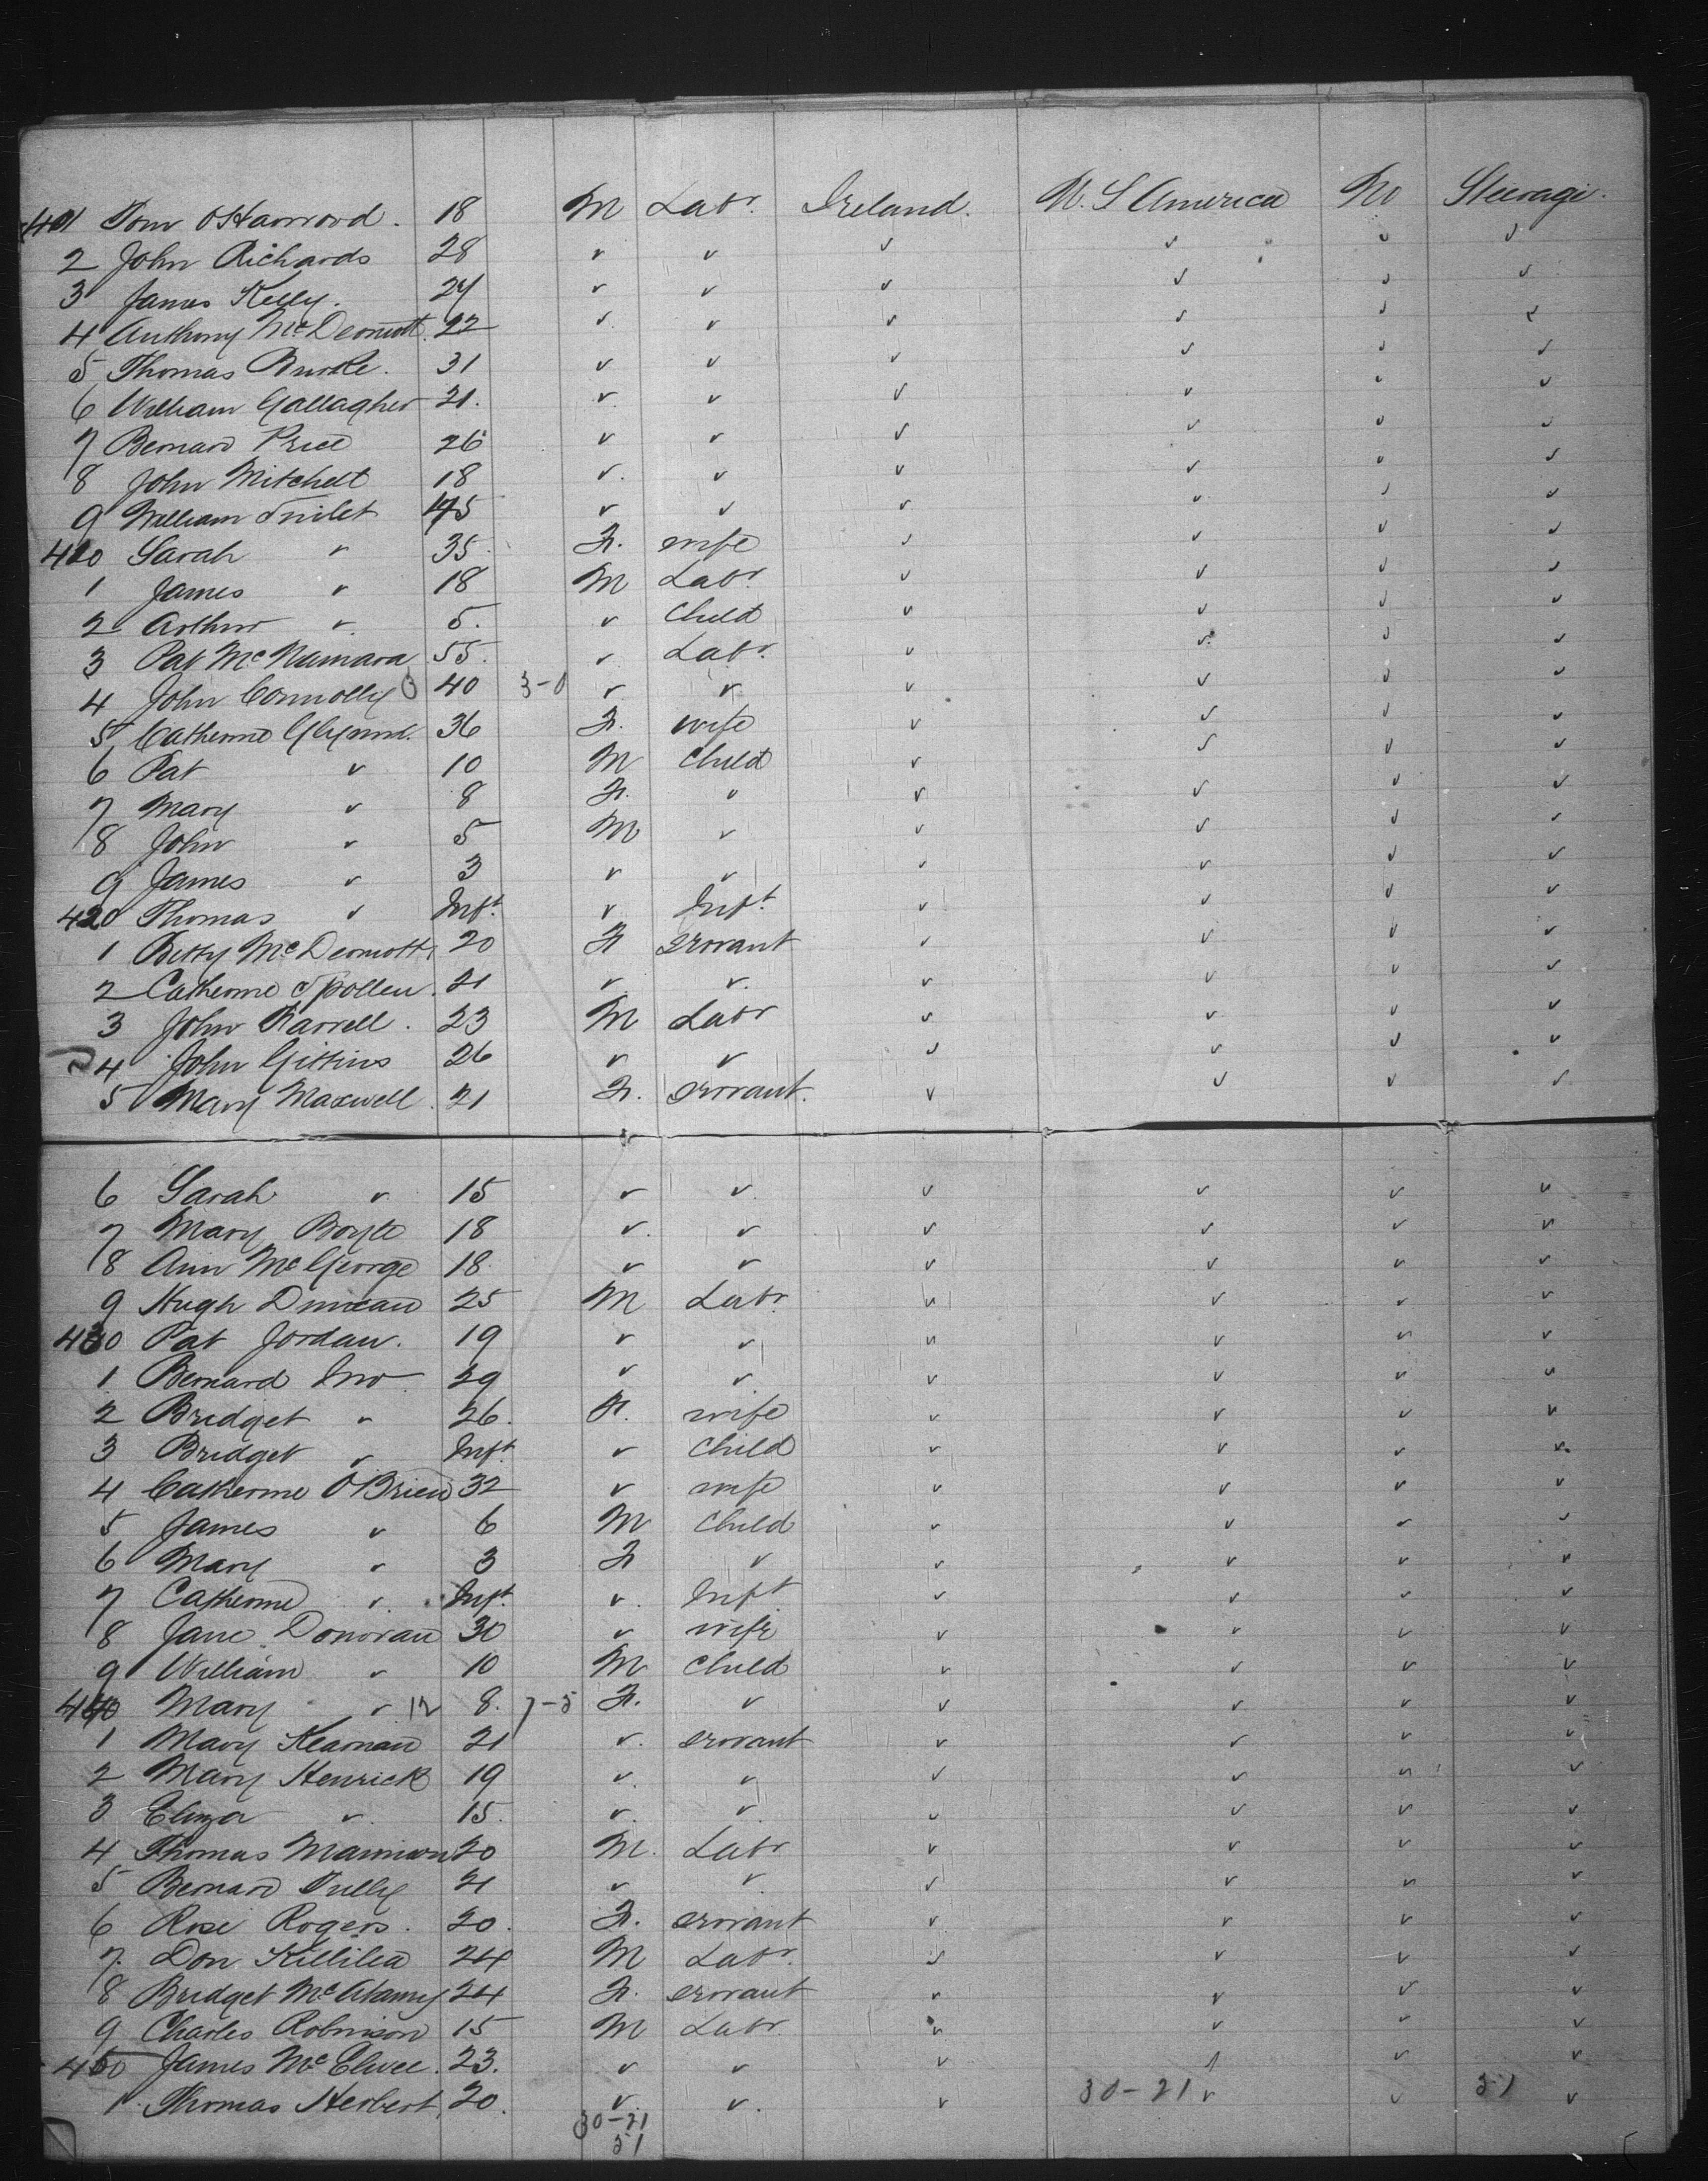 401 Tom OHarrood. 18 M Labr. Ireland. U. S America No Steerage.
2 John Richards 28 " " " " " "
3 James Kelly. 24 " " " " " "
4 Anthony McDermott. 22 " " " " " "
5 Thomas Burke. 31 " " " " " "
6 William Gallagher 21. " " " " " "
7 Bernard Price 26 " " " " " "
8 John Mitchell 18 " " " " " "
9 William 45 " " " " " "
410 Sarah " 35. F. wife " " " "
1 James " 18 M Labr " " " "
2 Arthur " 5. " Child " " " "
3 Pat McNamara 55. " Labr. " " " "
4 John Connolly 40 3-0 " " " " " "
5 Catherine Glynn. 36 F. wife " " " "
6 Pat " 10 M Child " " " "
7 Mary " 8 F. " " " " "
8 John " 5 M " " " " "
9 James " 3 " " " " " "
420 Thomas " Inft. " Inft. " " " "
1 Betty McDermott. 20 F servant " " " "
2 Catherine Spollen. 21 " " " " " "
3 John Farrell. 23 M Labr " " " "
4 John Gittins 26 " " " " " "
5 Mary Maxwell. 21 F. servant. " " " "
6 Sarah " 15 " " " " " "
7 Mary Boyle 18 " " " " " "
8 Ann McGeorge 18. " " " " " "
9 Hugh Duncan 25 M Labr. " " " "
430 Pat Jordan. 19 " " " " " "
1 Bernard 29 " " " " " "
2 Bridget " 26. F. wife " " " "
3 Bridget " Inft. " Child " " " "
4 Catherine O'Brien 32 " wife " " " "
5 James " 6 M Child " " " "
6 Mary " 3 F " " " " "
7 Catherine " Inft. " Inft. " " " "
8 Jane Donovan 30 " wife " " " "
9 William " 10 M Child " " " "
440 Mary " 12 8. 7-5 F. " " " " "
1 Mary Kearnan 21 " servant " " " "
2 Mary Henrick 19 " " " " " "
3 Eliza " 15. " " " " " "
4 Thomas Mannion 20 M. Labr " " " "
5 Bernard Tully 21 " " " " " "
6 Rose Rogers. 20. F. servant " " " "
7. Don Killilea 24 M Labr. " " " "
8 Bridget McAtamy 24 F. servant " " " "
9 Charles Robinson 15 M Labr. " " " "
450 James McElwee. 23. " " " " " "
1. Thomas Herbert, 20. " " " 30-21 " " 51 "
30-21
51